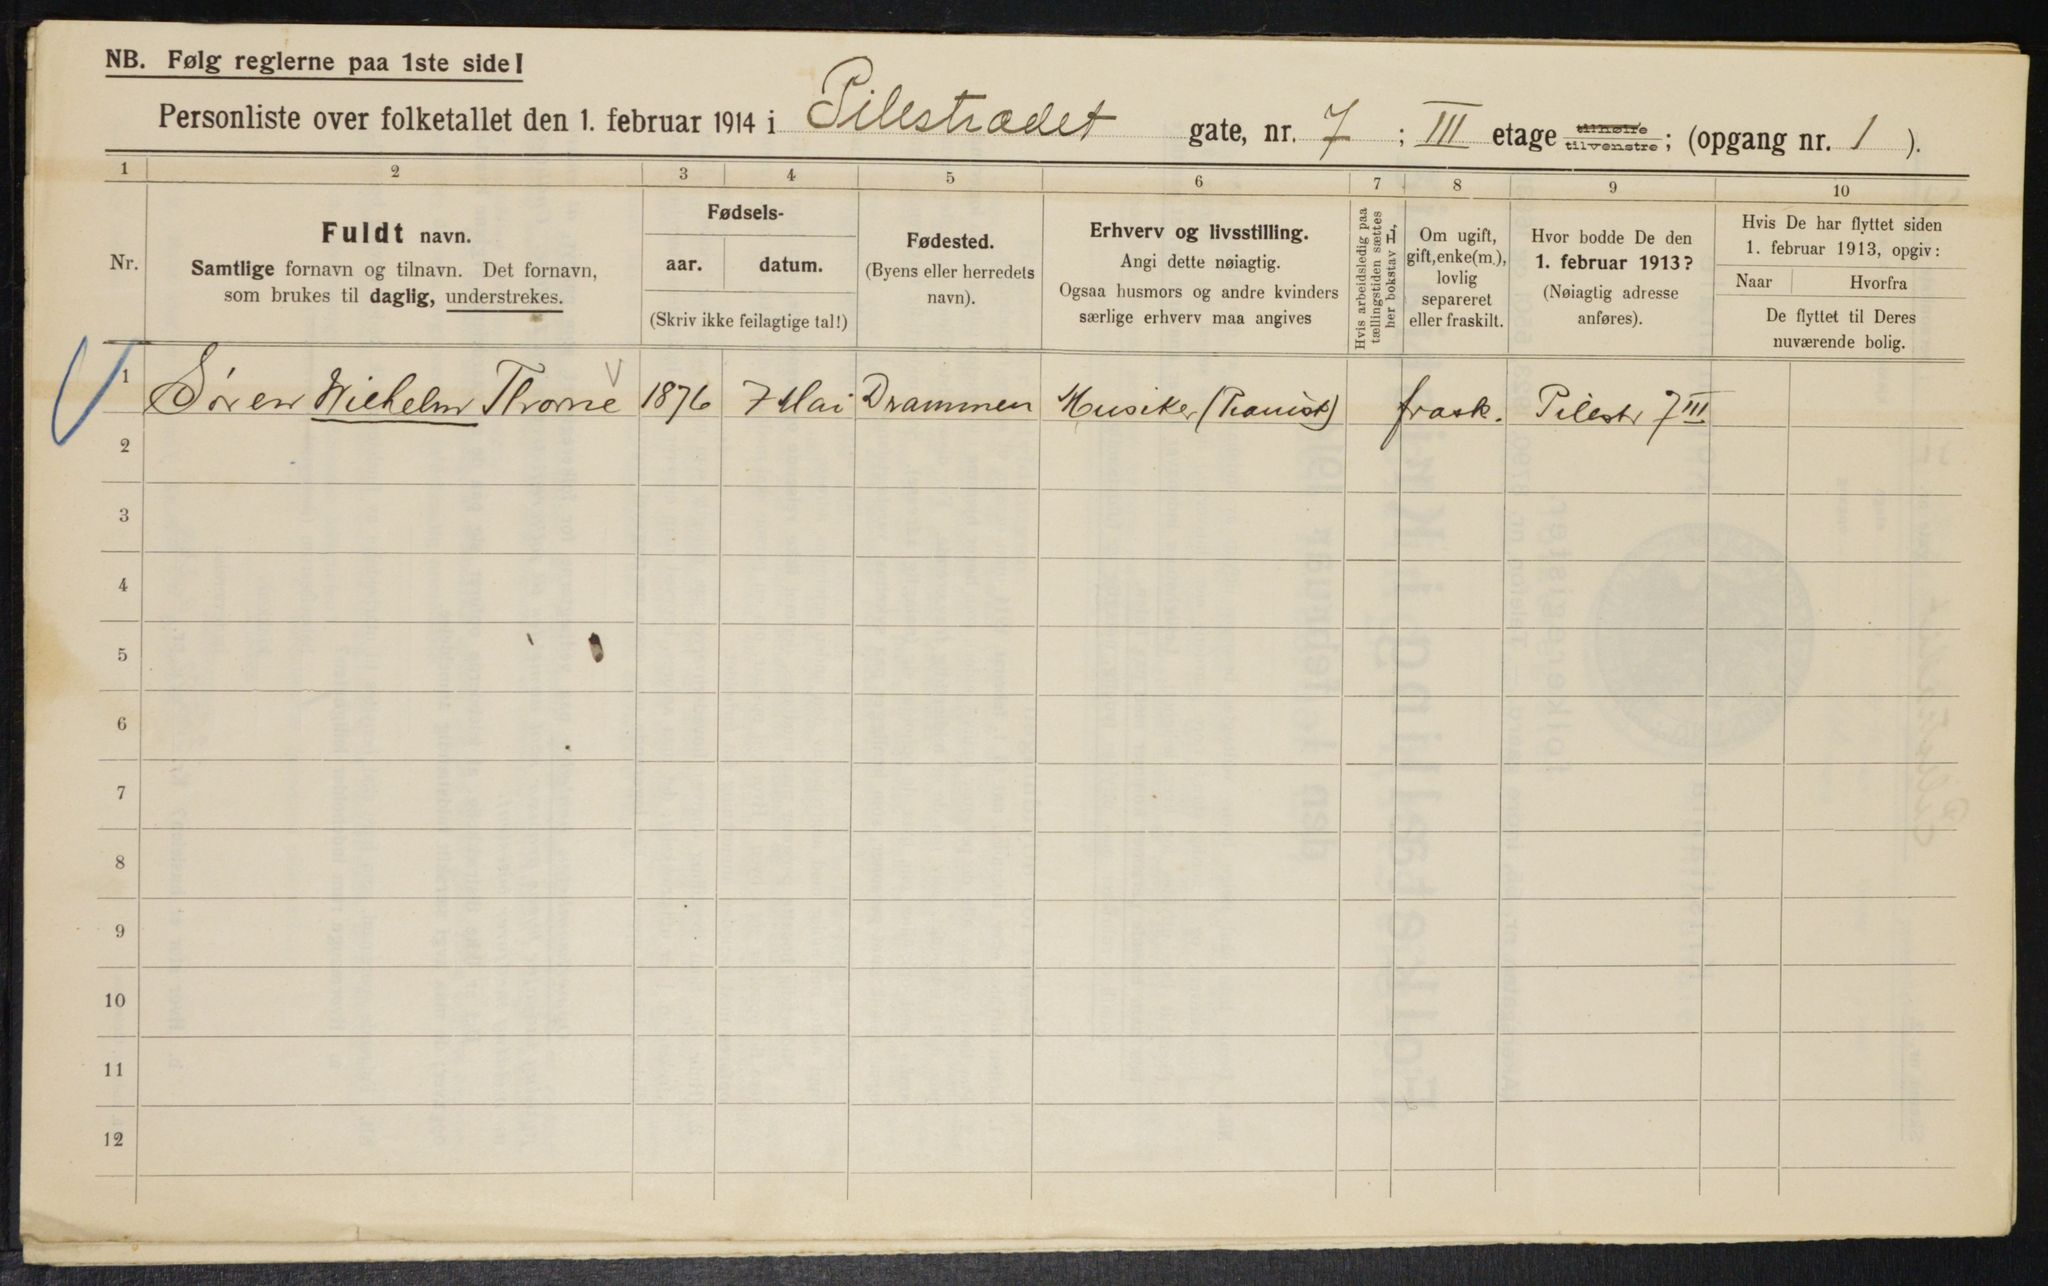 NB. Følg reglerne paa 1ste side!
Personliste over folketallet den 1. februar 1914 i Pilestrædet gate, nr. 7 ; III etage tilhøire tilvenstre ; (opgang nr. 1 ).
1 2 3 4 5 6 7 8 9 10
Nr.
Fuldt navn.
Samtlige fornavn og tilnavn. Det fornavn,
som brukes til daglig, understrekes.
Fødsels-
aar. datum.
(Skriv ikke feilagtige tal!)
Fødested.
(Byens eller herredets
navn).
Erhverv og livsstilling.
Angi dette nøiagtig.
Ogsaa husmors og andre kvinders
særlige erhverv maa angives
Hvis arbeidsledig paa
tællingstiden sættes
her bokstav L,
Om ugift,
gift, enke(m.),
lovlig
separeret
eller fraskilt.
Hvor bodde De den
1. februar 1913?
(Nøiagtig adresse
anføres).
Hvis De har flyttet siden
1. februar 1913, opgiv:
Naar Hvorfra
De flyttet til Deres
nuværende bolig.
1 Søren Wilhelm Thorne 1876 7 Mai Drammen Musiker (Pianist) frask. Pilestr 7 III
2
3
4
5
6
7
8
9
10
11
12